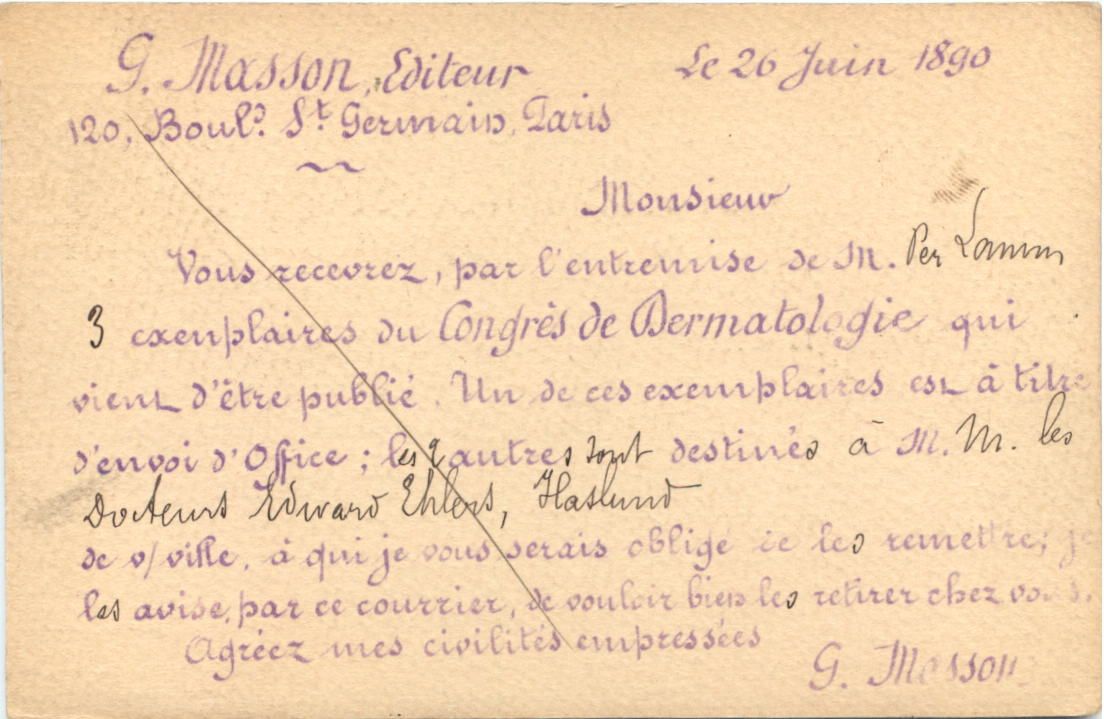 G. Masson, Editeur
Le 26 Juin 1890
120, Boul.d St Germain, Paris
Monsieur
Vous recevrez, par l'entremise de M. Per Lamm
3 exemplaires du Congrès de Dermatologie qui
vient d'être publié. Un de ces exemplaires est à titre
d'envoi d'Office ; les 2 autres sont destinés à M. M. les
Docteurs Edward Ehlers, Haslund
de v/ville, à qui je vous serais obligé de les remettre; je
les avise, par ce courrier, de vouloir bien les retirer chez vous.
Agréez mes civilités empressées
G. Masson